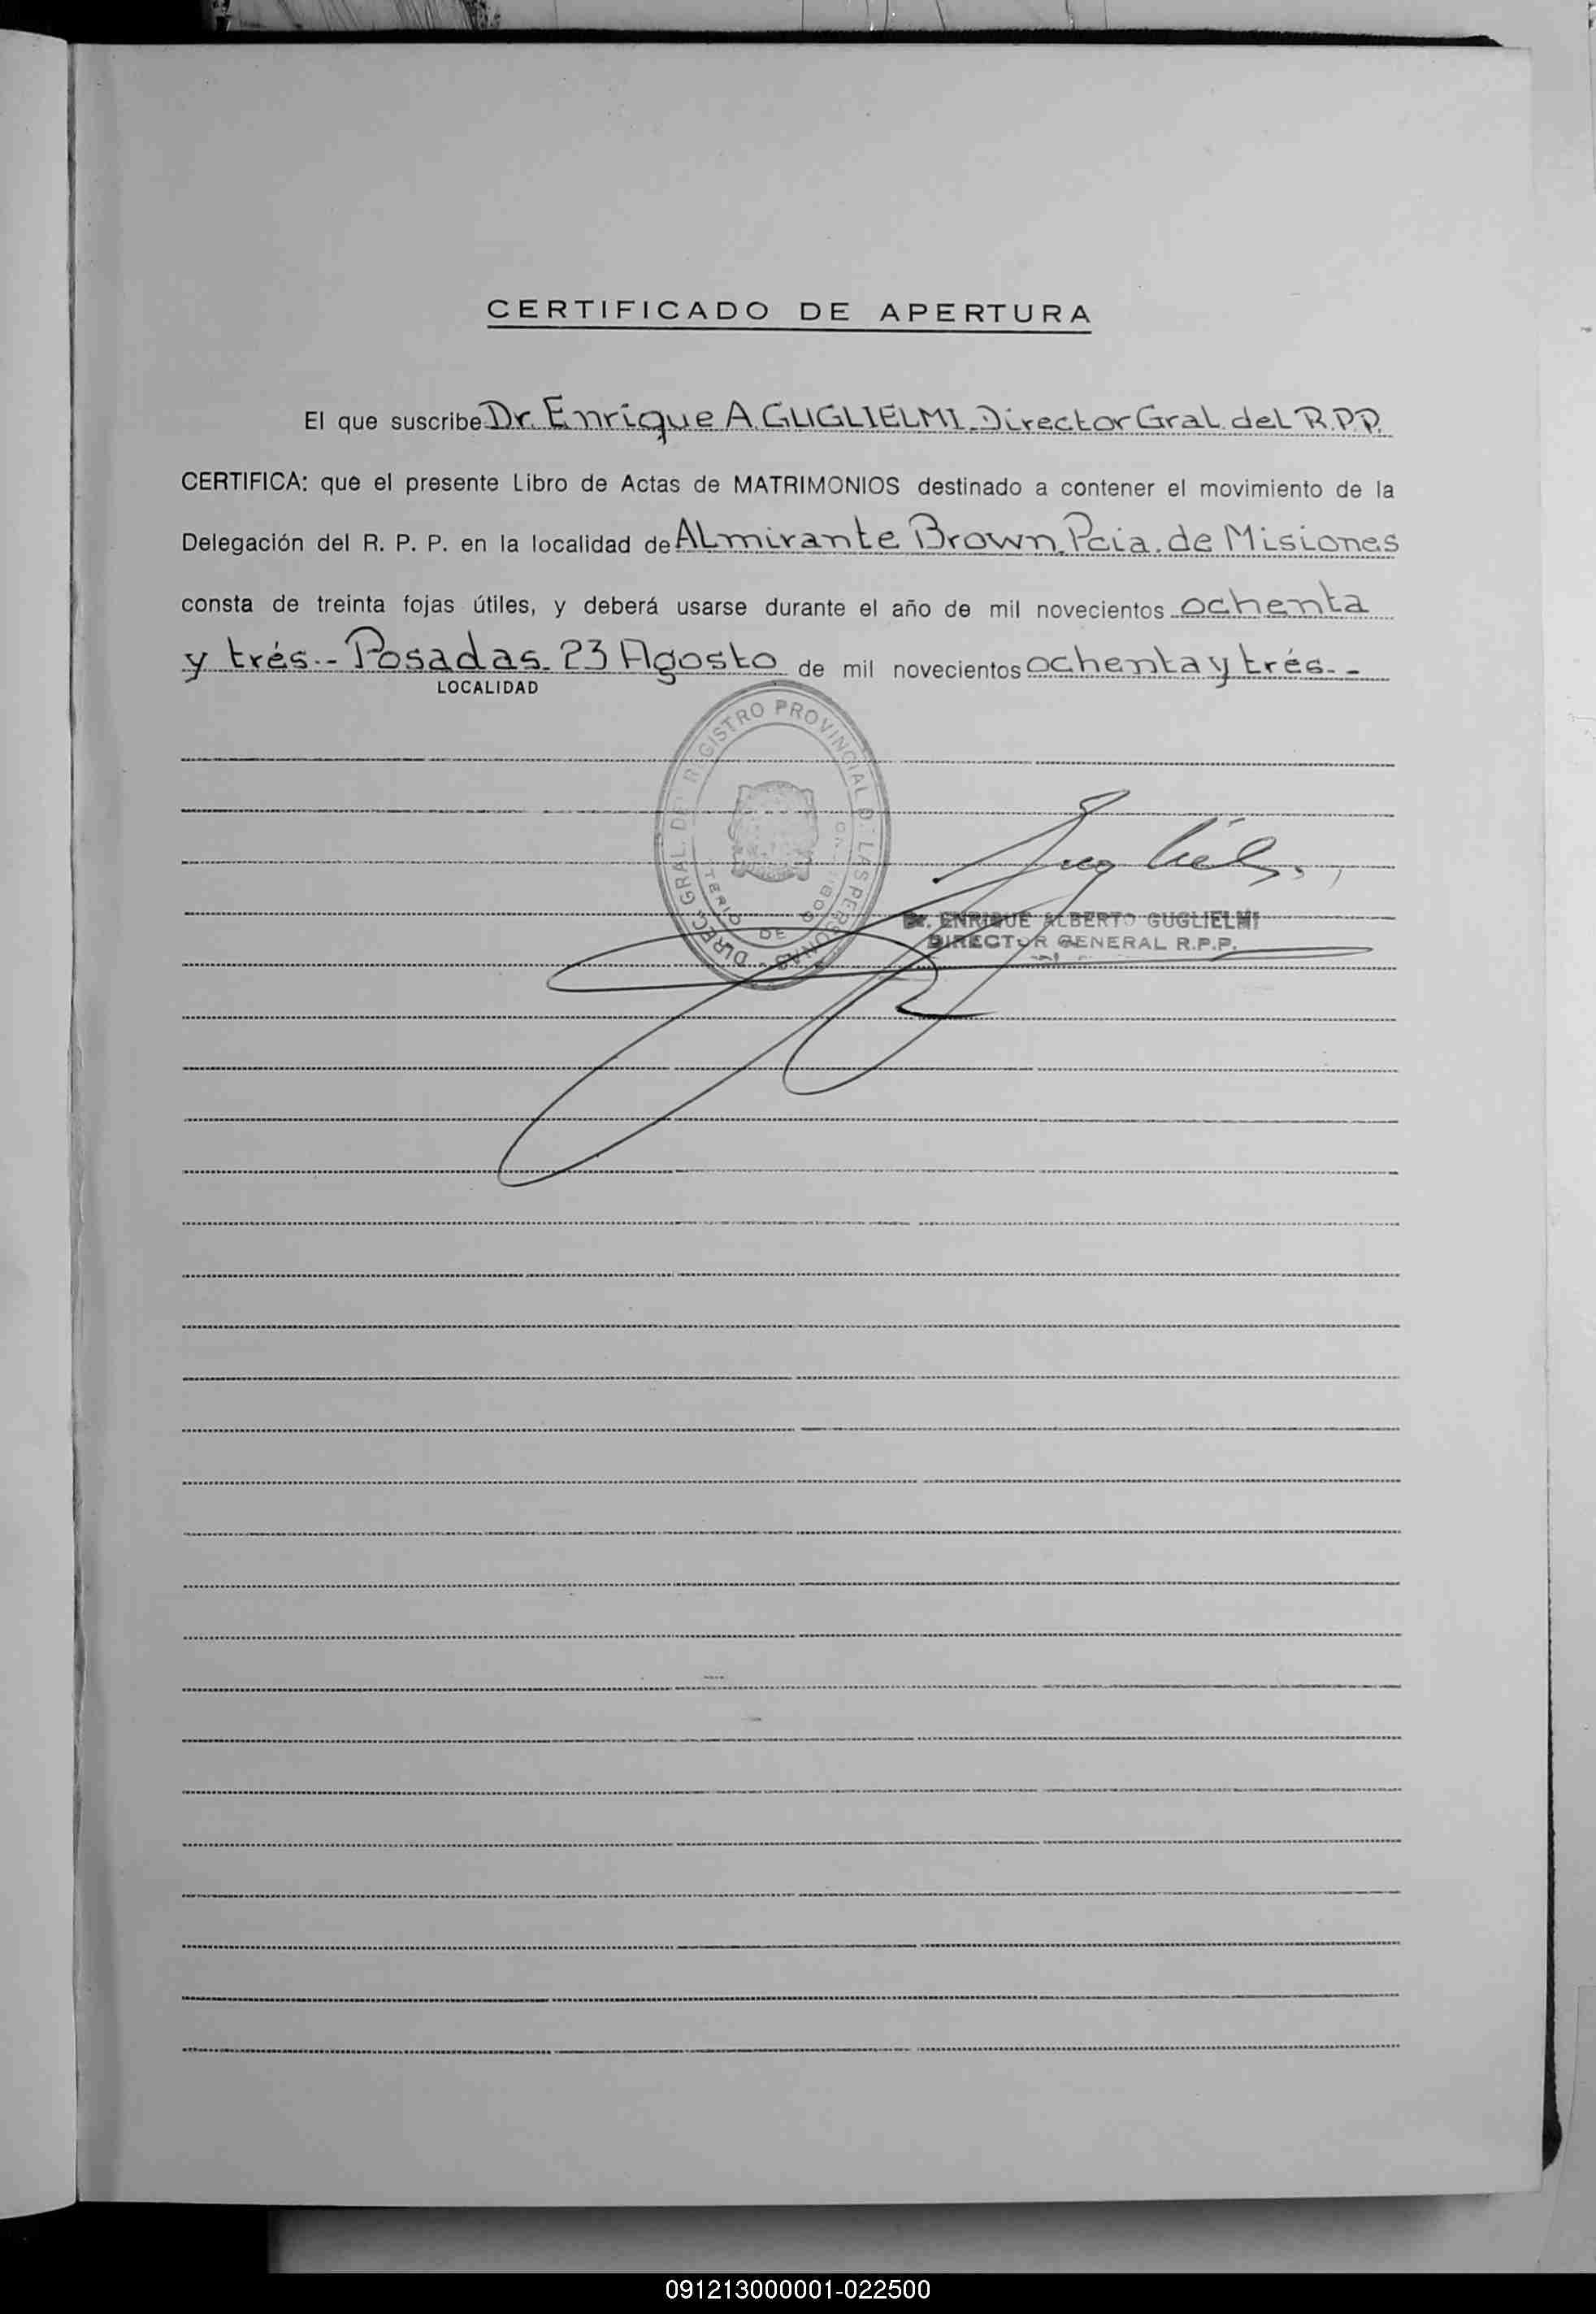 CERTIFICADO DE APERTURA
El que suscribe Dr. Enrique A. GUGLIELMI. Director Gral. del R.P.P.
CERTIFICA: que el presente Libro de Actas de MATRIMONIOS destinado a contener el movimiento de la
Delegación del R. P. P. en la localidad de Almirante Brown. Pcia. de Misiones
consta de treinta fojas útiles, y deberá usarse durante el año de mil novecientos ochenta
y trés.- Posadas. 23 Agosto de mil novecientos ochenta y trés.-
LOCALIDAD
DIREC. GRAL. DEL REGISTRO PROVINCIAL DE LAS PERSONAS
DE
Dr. ENRIQUE ALBERTO GUGLIELMI
DIRECTOR GENERAL R.P.P.
091213000001-022500